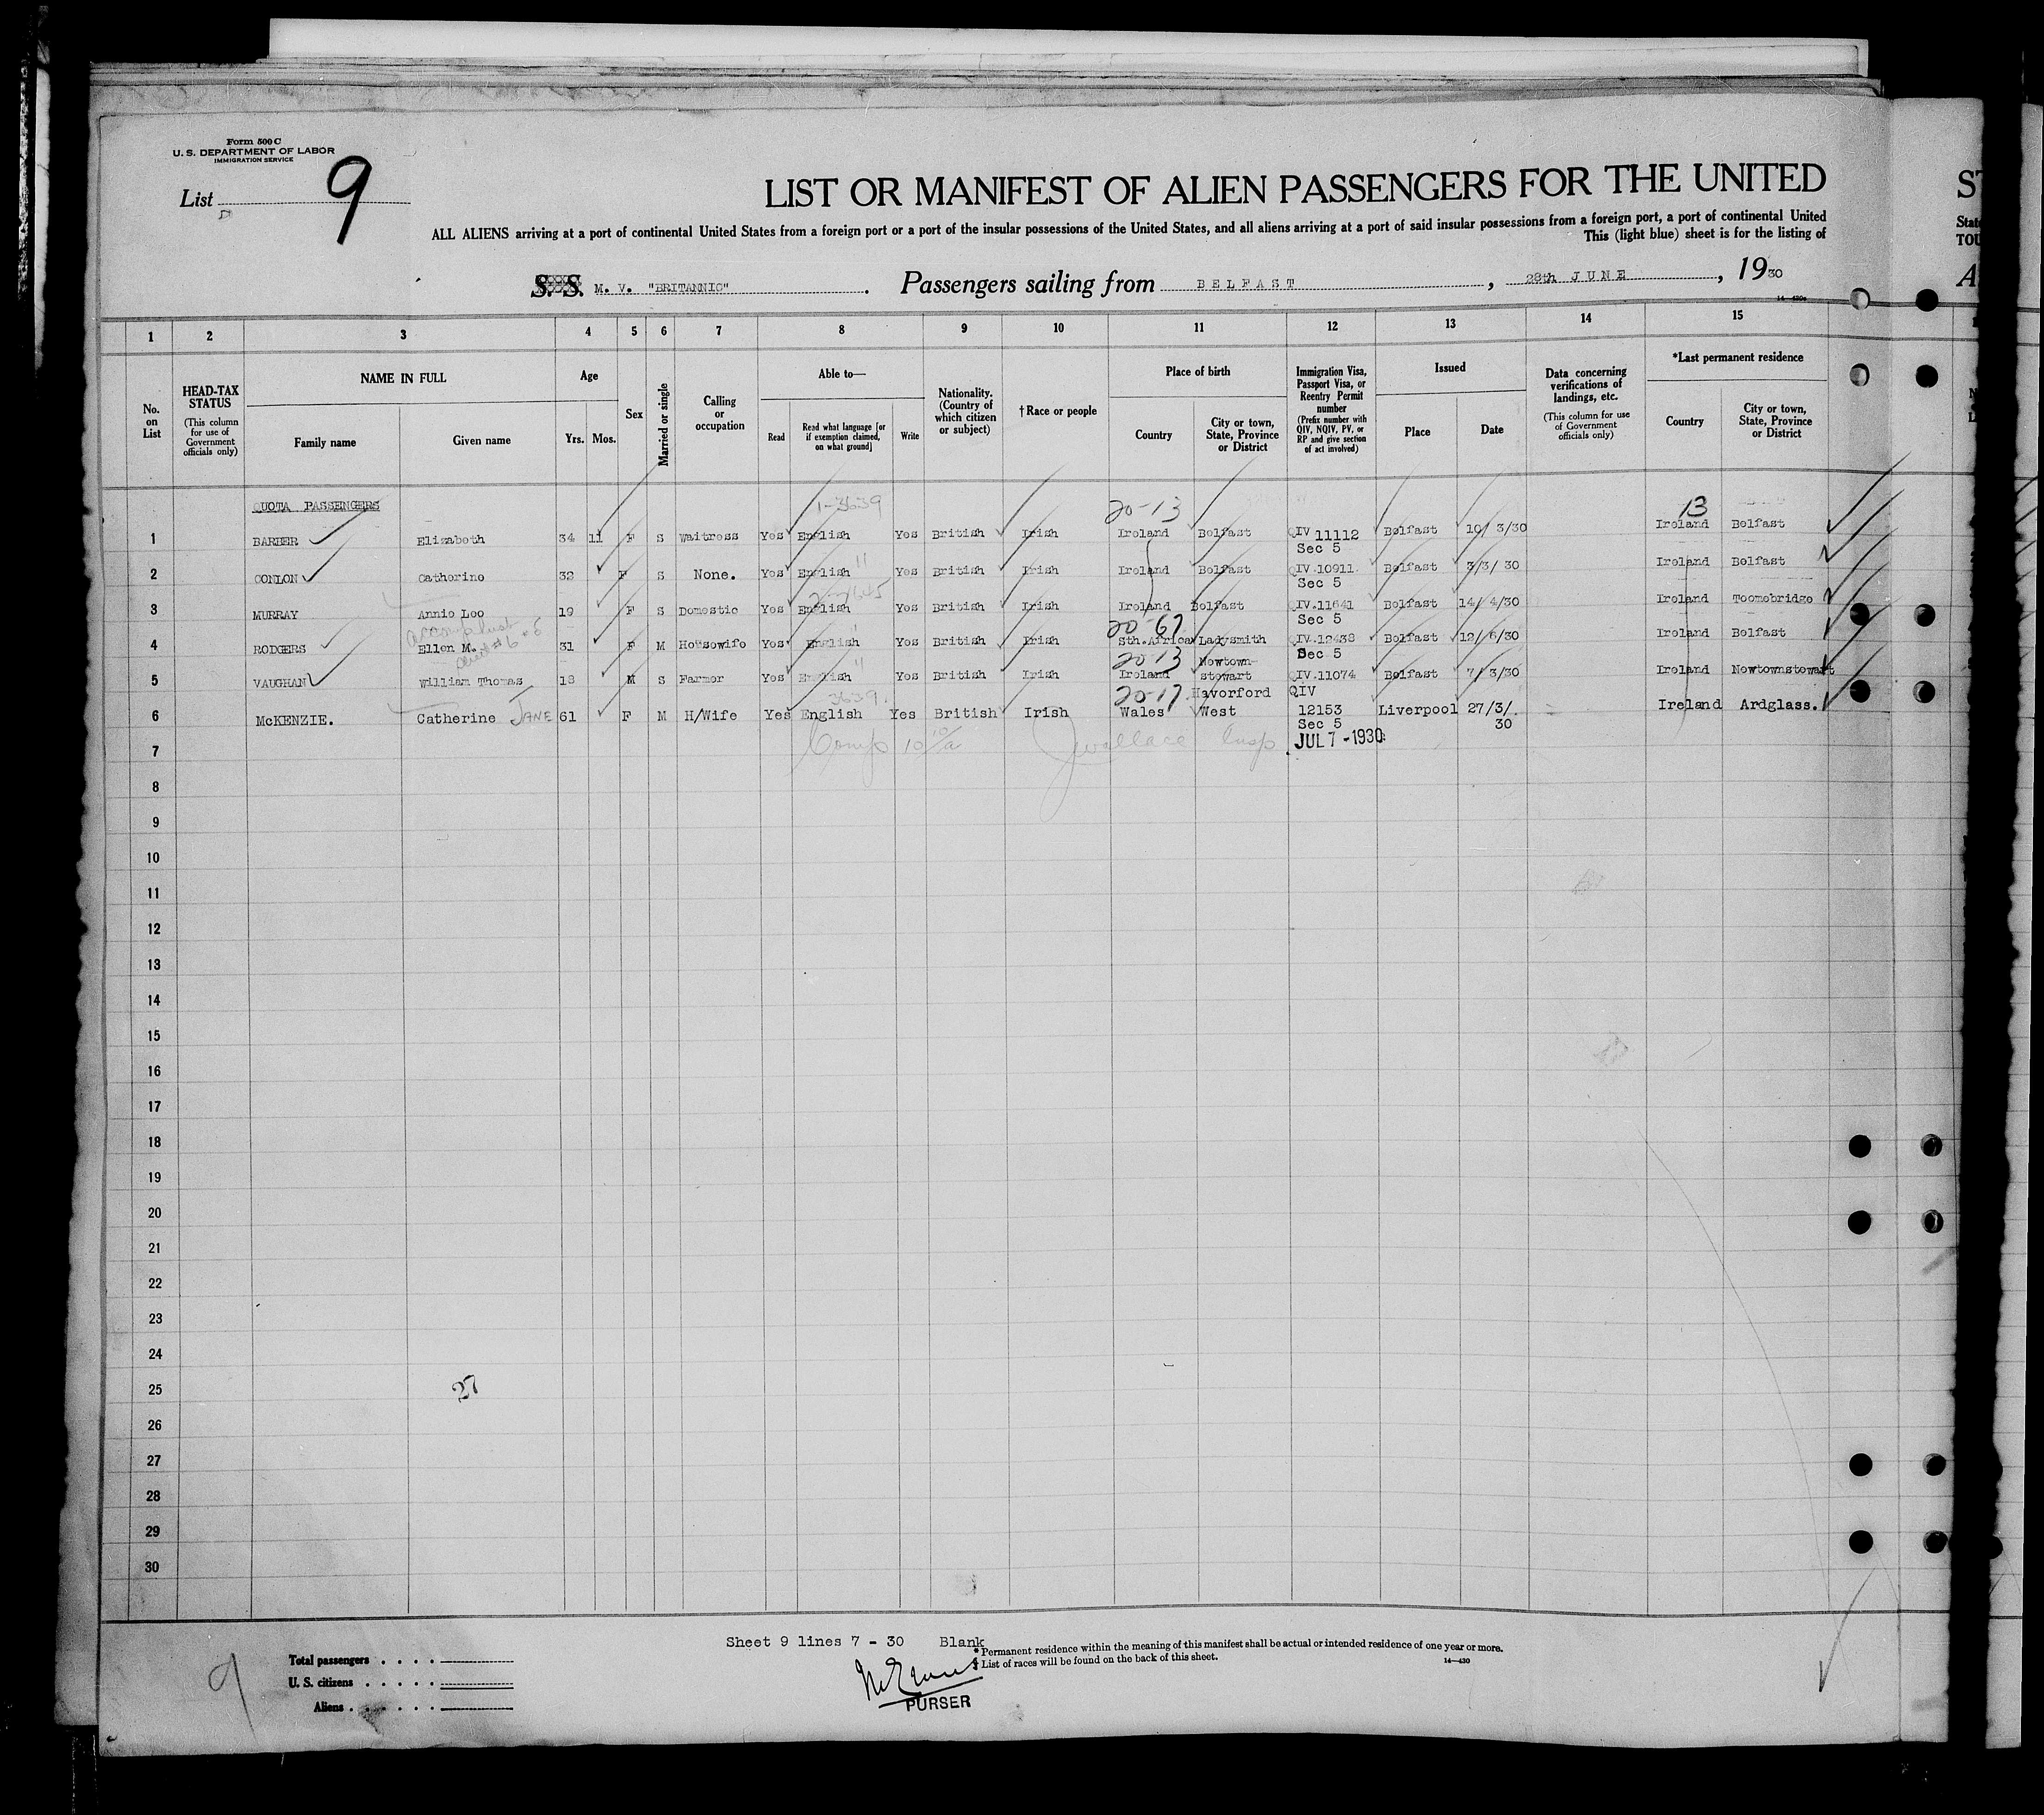 Form 500 C
U. S. DEPARTMENT OF LABOR
IMMIGRATION SERVICE
List 9
LIST OR MANIFEST OF ALIEN PASSENGERS FOR THE UNITED
ALL ALIENS arriving at a port of continental United States from a foreign port or a port of the insular possessions of the United States, and all aliens arriving at a port of said insular possessions from a foreign port, a port of continental United
This (light blue) sheet is for the listing of
S. S. M. V. "BRITANNIC". Passengers sailing from BELFAST, 28th JUNE, 1930
1 2 3 4 5 6 7 8 9 10 11 12 13 14 15
No. on List
HEAD-TAX STATUS (This column for use of Government officials only)
NAME IN FULL
Family name Given name
Age
Yrs. Mos.
Sex
Married or single
Calling or occupation
Able to—
Read
Read what language [or if exemption claimed, on what ground]
Write
Nationality. (Country of which citizen or subject)
†Race or people
Place of birth
Country
City or town, State, Province or District
Immigration Visa, Passport Visa, or Reentry Permit number (Prefix number with QIV, NQIV, PV, or RP and give section of act involved)
Issued
Place Date
Data concerning verifications of landings, etc. (This column for use of Government officials only)
*Last permanent residence
Country
City or town, State, Province or District
QUOTA PASSENGERS 1-3639 20-13 13
1 BARBER Elizabeth 34 11 F S Waitress Yes English Yes British Irish Ireland Belfast QIV 11112 Sec 5 Belfast 10/3/30 Ireland Belfast
2 CONLON Catherine 32 F S None. Yes English Yes British Irish Ireland Belfast QIV.10911 Sec 5 Belfast 3/3/30 Ireland Belfast
3 MURRAY Annie Leo 19 F S Domestic Yes English Yes British Irish Ireland Belfast QIV.11641 Sec 5 Belfast 14/4/30 Ireland Toomebridge
20-67
4 RODGERS Ellen M. 31 F M Housewife Yes English Yes British Irish Sth.Africa Ladysmith QIV.12438 Sec 5 Belfast 12/6/30 Ireland Belfast
20-13
5 VAUGHAN William Thomas 18 M S Farmer Yes English Yes British Irish Ireland Newtown-stewart QIV.11074 Belfast 7/3/30 Ireland Newtownstewart
3639. 20-17
6 McKENZIE. Catherine JANE 61 F M H/Wife Yes English Yes British Irish Wales Haverford West QIV 12153 Sec 5 Liverpool 27/3/30 Ireland Ardglass.
7 Wallace Insp JUL 7 - 1930
8
9
10
11
12
13
14
15
16
17
18
19
20
21
22
23
24
25 27
26
27
28
29
30
Sheet 9 lines 7 - 30 Blank
* Permanent residence within the meaning of this manifest shall be actual or intended residence of one year or more.
† List of races will be found on the back of this sheet.
14—430
Total passengers
U. S. citizens
Aliens
9
PURSER